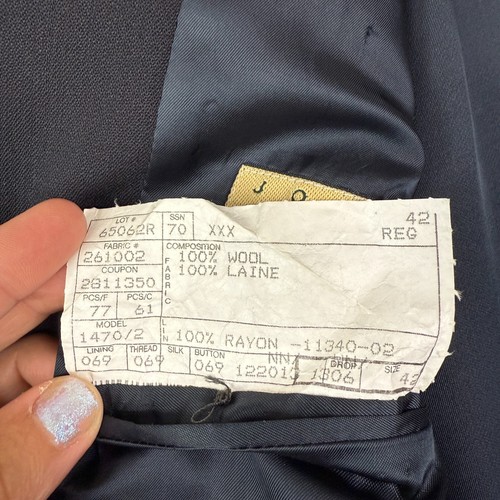 J O
LOT # SSN 42
65062R 70 XXX REG
FABRIC # COMPOSITION
261002 FABRIC 100% WOOL
COUPON 100% LAINE
2811350
PCS/F PCS/C
77 61
MODEL
1470/2 LIN 100% RAYON -11340-02
LINING THREAD SILK BUTTON NN DROP SIZE
069 069 069 122013 1306 42